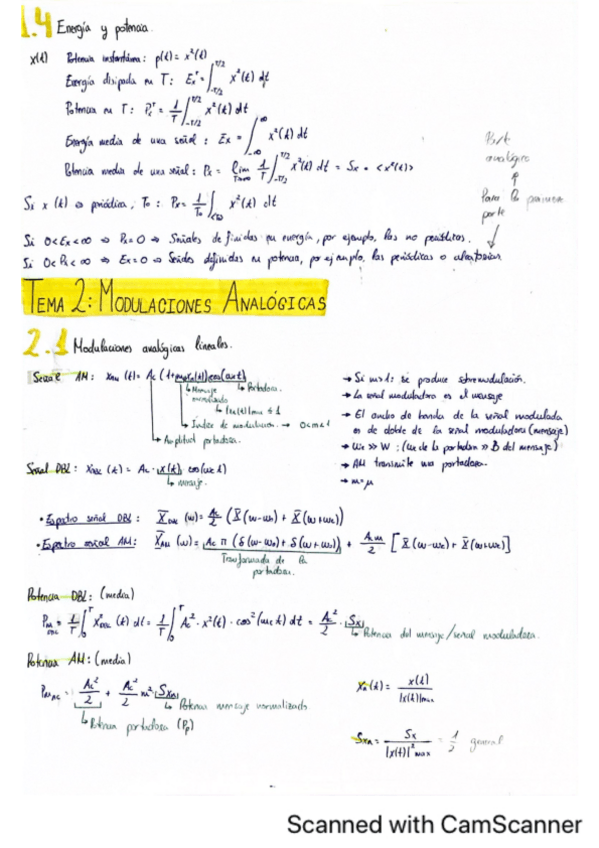 1.4 Energía y potencia.
x(t) Potencia instantánea: p(t) = x²(t)
Energía disipada en T: Ex^T = ∫_{-T/2}^{T/2} x²(t) dt
Potencia en T: Px^T = 1/T ∫_{-T/2}^{T/2} x²(t) dt
Energía media de una señal: Ex = ∫_{-∞}^{∞} x²(t) dt
Potencia media de una señal: Px = lim_{T→∞} 1/T ∫_{-T/2}^{T/2} x²(t) dt = Sx = <x²(t)>
Parte
analógica
Para la primera
parte
Si x(t) es periódica, To: Px = 1/To ∫_{<To>} x²(t) dt
Si 0<Ex<∞ ⇒ Px=0 ⇒ Señales definidas en energía, por ejemplo, las no periódicas.
Si 0<Px<∞ ⇒ Ex=∞ ⇒ Señales definidas en potencia, por ejemplo, las periódicas o aleatorias.
TEMA 2: MODULACIONES ANALÓGICAS
2.1 Modulaciones analógicas lineales.
Señal AM: x_AM(t) = Ac (1+m·xn(t)) cos(ωc t)
↳ Mensaje normalizado
↳ |xn(t)|max ≤ 1
↳ Portadora.
↳ Índice de modulación. → 0<m≤1
↳ Amplitud portadora.
→ Si m>1: se produce sobremodulación.
→ La señal moduladora es el mensaje
→ El ancho de banda de la señal modulada
es de doble de la señal moduladora (mensaje)
→ ωc >> W : (ωc de la portadora >> B del mensaje)
→ AM transmite una portadora.
→ m=μ
Señal DBL: x_DBL(t) = Ac · x(t) · cos(ωc t)
↳ mensaje.
• Espectro señal DBL: X_DBL(ω) = Ac/2 (X(ω-ωc) + X(ω+ωc))
• Espectro señal AM: X_AM(ω) = Ac π (δ(ω-ωc) + δ(ω+ωc)) + Ac m/2 [X(ω-ωc) + X(ω+ωc)]
Transformada de la
portadora.
Potencia DBL: (media)
Pm_DBL = 1/T ∫_0^T x²_DBL(t) dt = 1/T ∫_0^T Ac² · x²(t) · cos²(ωc t) dt = Ac²/2 · Sx
↳ Potencia del mensaje/señal moduladora.
Potencia AM: (media)
Pm_AM = Ac²/2 + Ac²/2 m² Sxn
↳ Potencia mensaje normalizado
↳ Potencia portadora (Pp)
xn(t) = x(t) / |x(t)|max
Sxn = Sx / |x(t)|²max = 1/2 general
Scanned with CamScanner